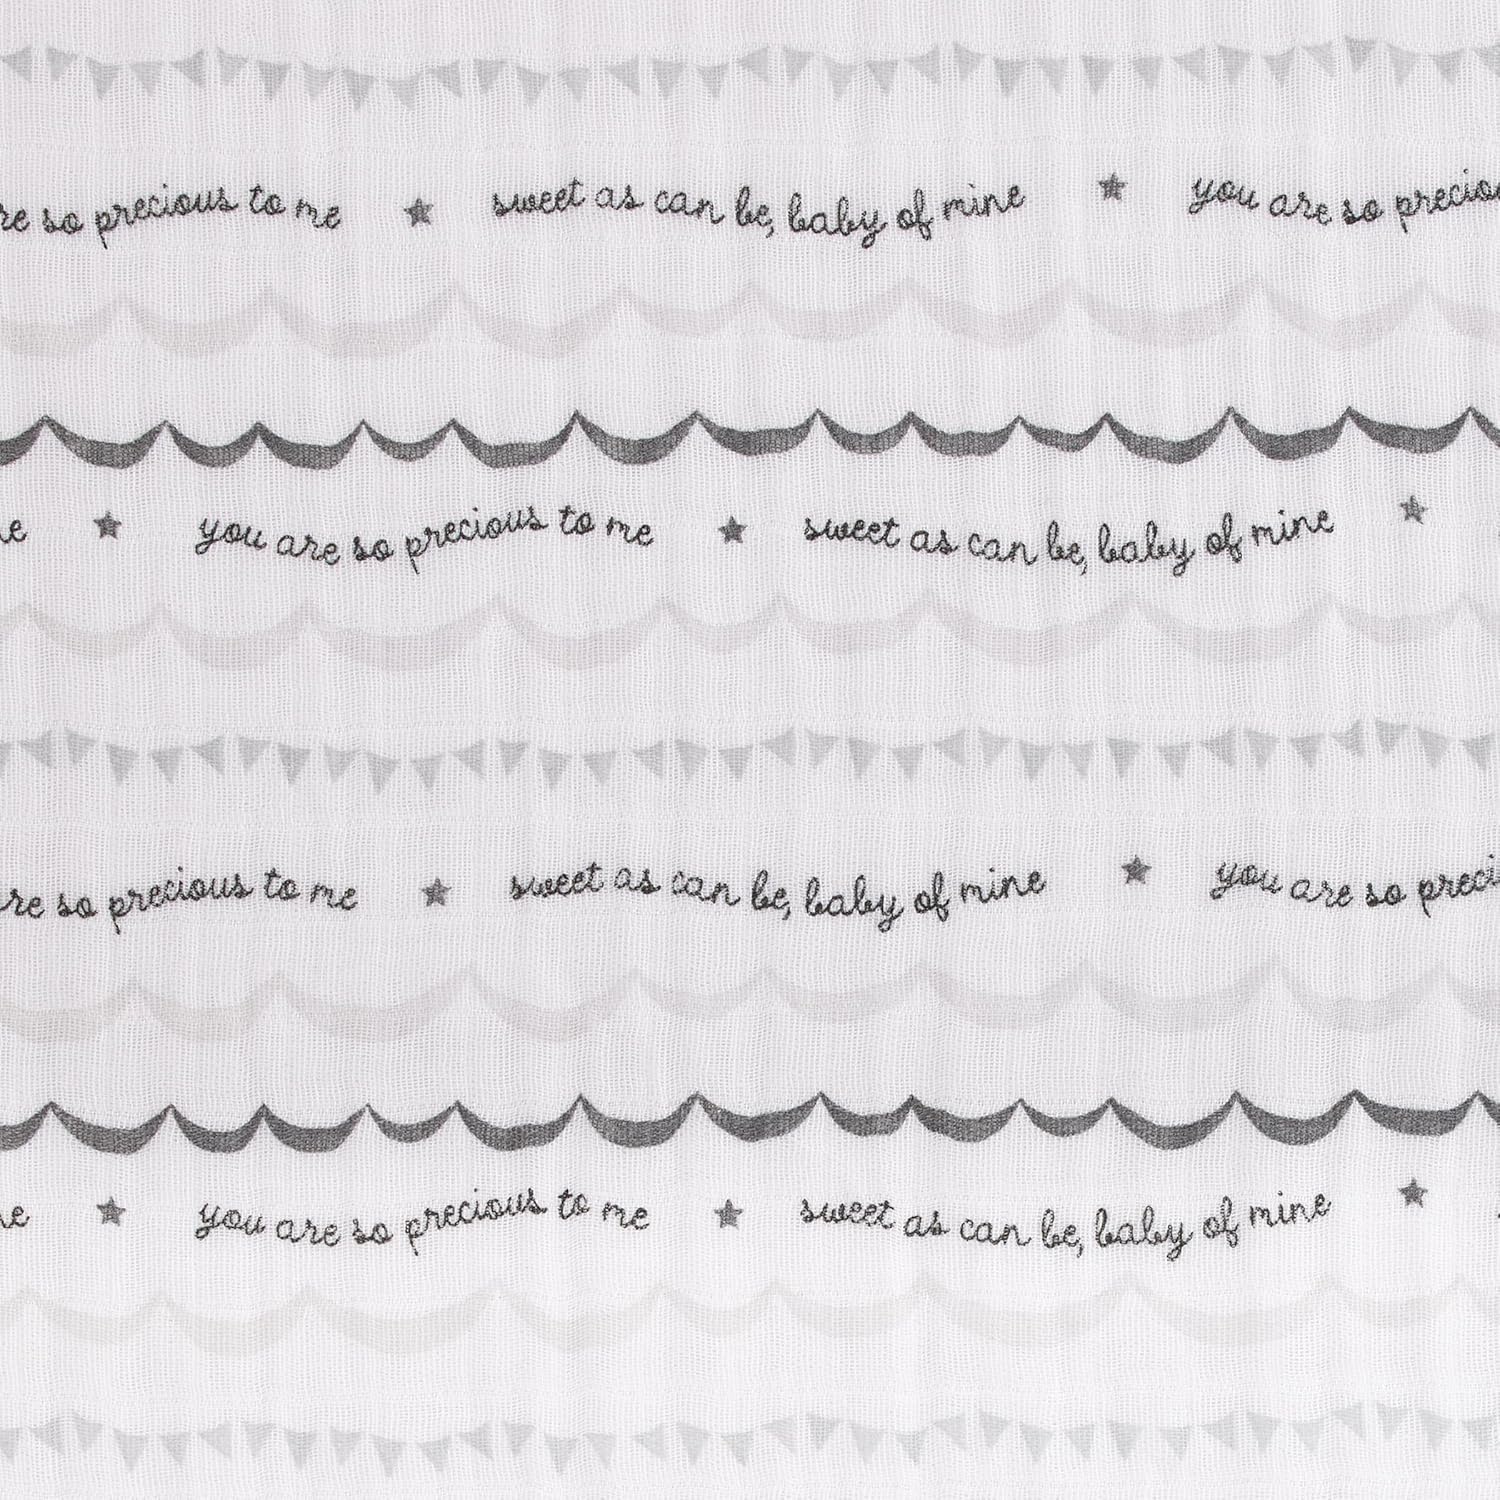 re so precious to me ★ sweet as can be, baby of mine ★ you are so precio
e ★ you are so precious to me ★ sweet as can be, baby of mine ★
re so precious to me ★ sweet as can be, baby of mine ★ you are so preci
e ★ you are so precious to me ★ sweet as can be, baby of mine ★